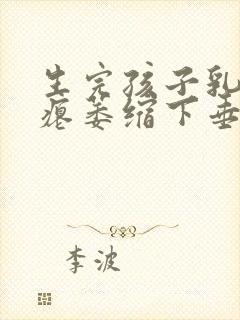 生完孩子乳
瘪萎缩下垂
李波